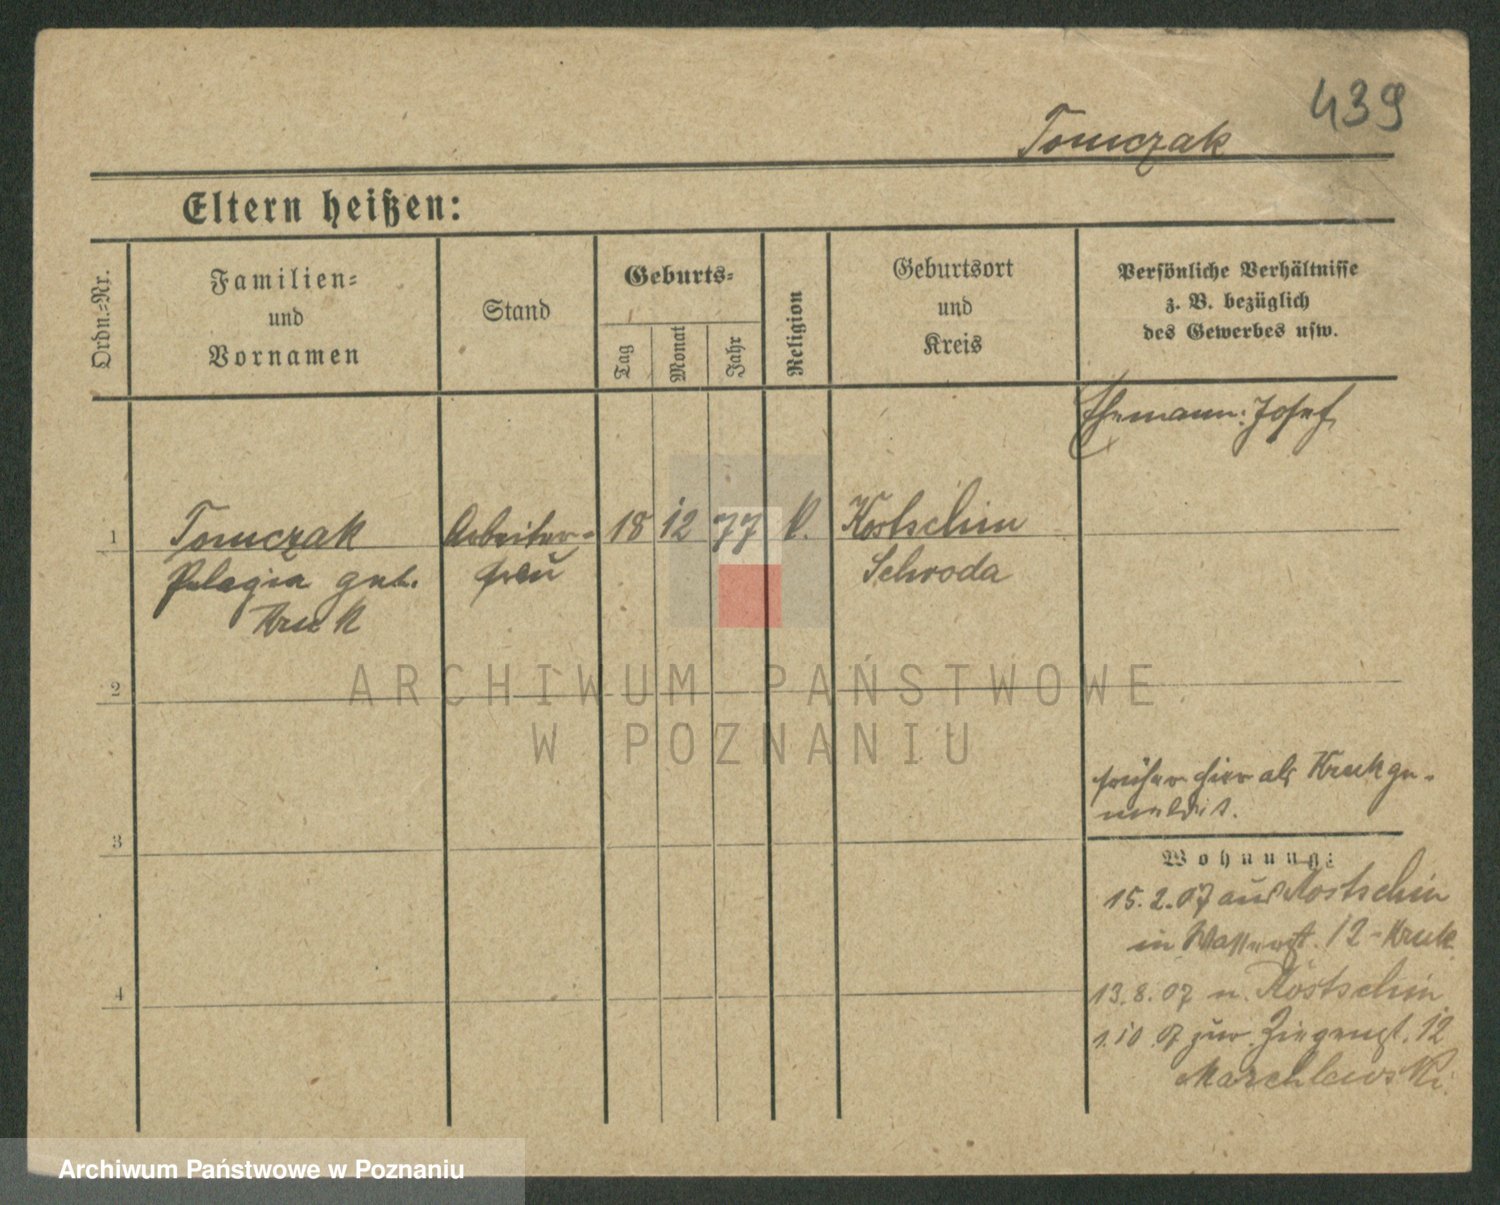 439
Tomczak
Eltern heißen:
Ordn.-Nr.
Familien- und Vornamen
Stand
Geburts-
Tag
Monat
Jahr
Religion
Geburtsort und Kreis
Persönliche Verhältnisse
z. B. bezüglich
des Gewerbes usw.
Ehemann: Josef
1 Tomczak Arbeiter- 18 12 77 k. Kostschin
Pelagia geb. frau Schroda
Kruk
2
ARCHIWUM PAŃSTWOWE
W POZNANIU
früher hier als Kruk ge-
meldet.
3
Wohnung:
15.2.07 aus Kostschin
in Wasserst. 12 - Kruk
4
13.8.07 n. Kostschin
1.10.07 zur. Ziegenst. 12
Marchlewski
Archiwum Państwowe w Poznaniu